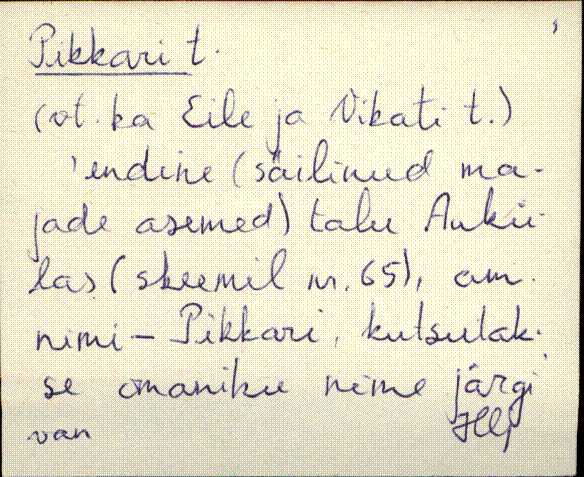 Pikkari t.
(vt. ka Eile ja Vikati t.)
'endine (säilinud ma-
jade asemed) talu Aukü-
las (skeemil nr. 65), am.
nimi – Pikkari, kutsutak-
se omaniku nime järgi'
van